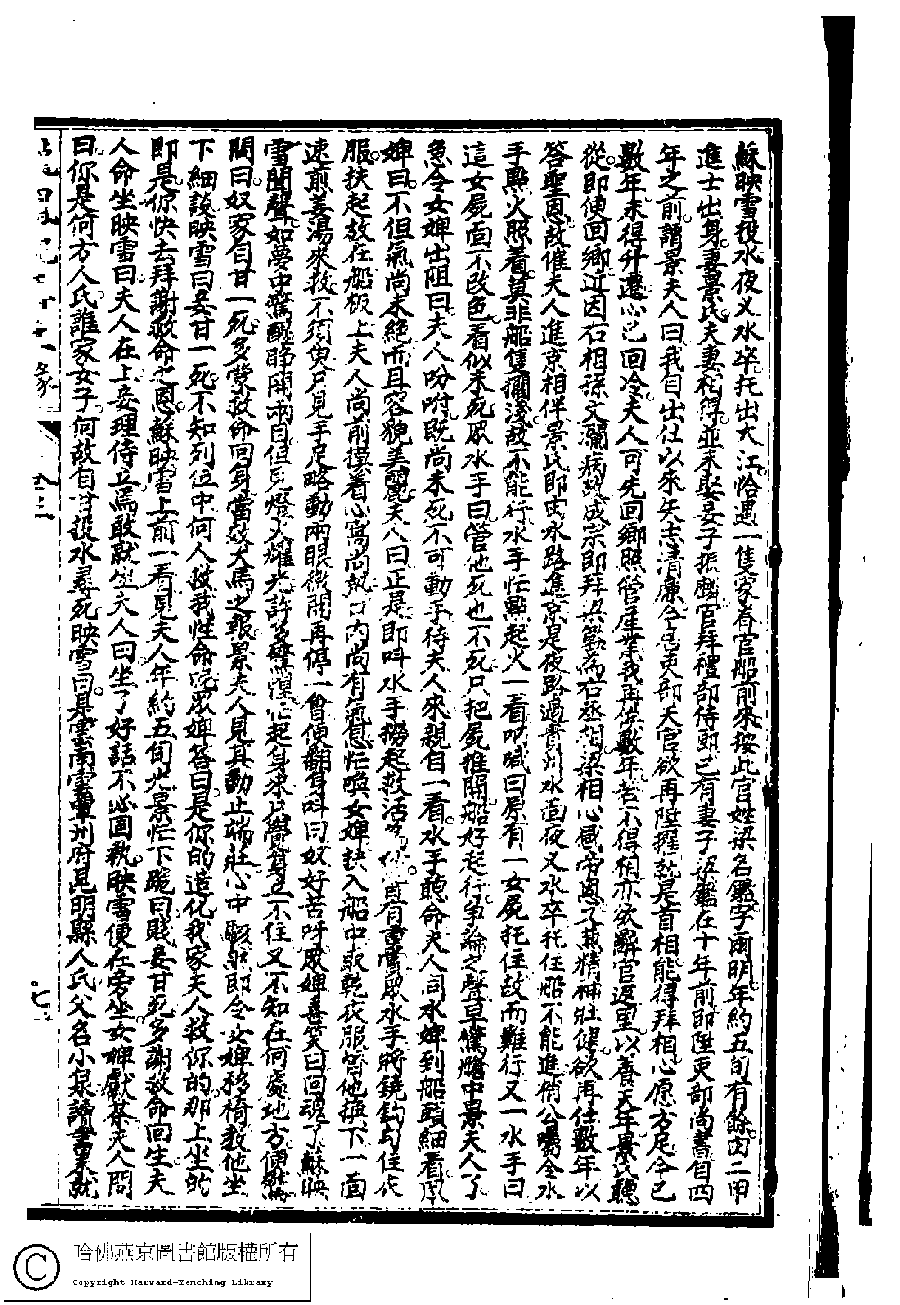 蘇映雪投水夜义水卒托出大江恰遇一隻家眷官船前來按此官姓梁名鑑字爾明年約五旬有餘由二甲
進士出身妻景氏夫妻和得並未娶妾子振麟官拜禮部侍郎已有妻子梁鑑在十年前即陞吏部尚書自四
年之前謂景夫人曰我自出仕以來矢志清廉今官吏部大官欲再陞擢就是首相能得拜相心愿方足今已
數年未得升遷心已回冷夫人可先回鄉照管產業我再做數年若不得相亦欲辭官還里以養天年景氏聽
從即便回鄉近因右相孫文瀾病故成宗即拜梁鑑為右丞相梁相心感帝恩了其精神壯健欲再仕數年以
答聖恩故催夫人進京相伴景氏即由水路進京是夜路過貴州水面夜义水卒托住船不能進梢公喝令水
手點火照着莫非船隻擱淺故不能行水手忙點起火一看吶喊曰原有一女屍托住故而難行又一水手曰
這女屍面不改色看似未死眾水手曰管他死也不死只把屍推開船好起行爭論之聲早驚艙中景夫人了
急令女婢出阻曰夫人吩咐既尚未死不可動手待夫人來親自一看水手聽命夫人同水婢到船頭細看
婢曰不但氣尚未絕而且容貌美麗夫人曰正是即叫水手撈起救活 重賞眾水手將鐃鈎勾住衣
服扶起放在船板上夫人尚前摸着心窩尚熱口內尚有氣息忙喚女婢扶入船中取乾衣服皆他換下一面
速煎姜湯來救不須臾只見手足略動兩眼微開再停一會便翻身叫曰奴好苦呀眾婢喜笑曰回魂了蘇映
雪聞聲如夢中驚醒睜開兩目但見燈火耀光許多 忙起身來 身立不住又不知在何處地方便
問曰奴家自甘一死多蒙救命回身當效犬馬之報景夫人見其動止端莊心中 即令女婢移椅教他坐
下細談映雪曰妾甘一死不知列位中何人救我性命呢眾婢答曰是你的造化我家夫人救你的那上坐的
即是你快去拜謝救命之恩蘇映雪上前一看見夫人年約五旬光景忙下跪曰賤妾甘死多謝救命回生夫
人命坐映雪曰夫人在上妾理侍立焉敢就坐夫人曰坐了好話不必固執映雪便在旁坐女婢獻茶夫人問
曰你是何方人氏誰家女子何故自甘投水尋死映雪曰具雲南雲 州府昆明縣人氏父名小泉讀書未就
卷三
七
哈佛燕京圖書館版權所有
Copyright Harvard-Yenching Library